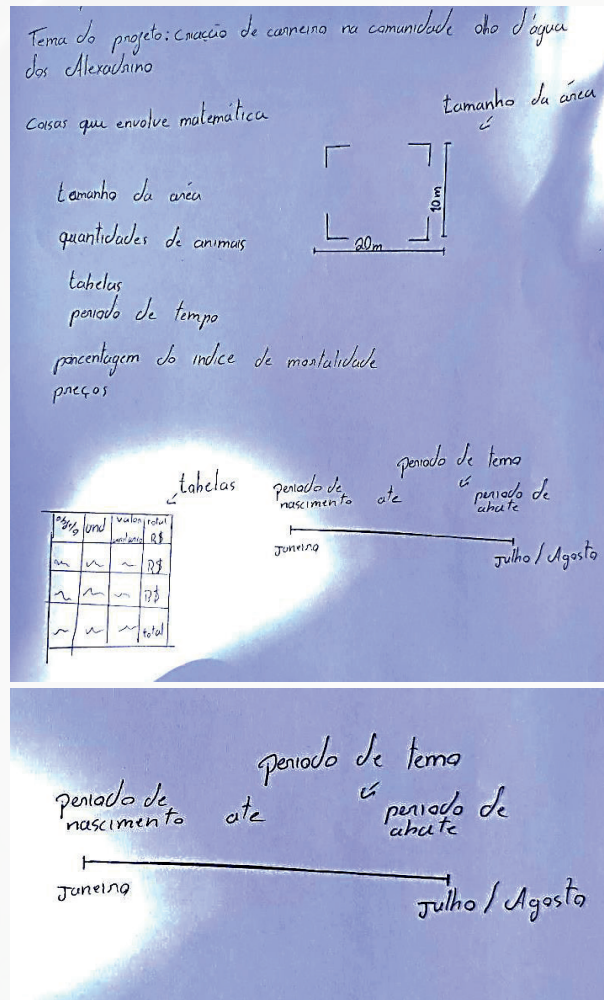 Tema do projeto: Criação de carneiro na comunidade olho d'água
dos Alexadrino
Coisas que envolve matemática
tamanho da área
10m
20m
tamanho da area
quantidades de animais
tabelas
periodo de tempo
porcentagem do indice de mortalidade
preços
tabelas
und
valor
unitario
total
R$
R$
R$
total
periodo de tema
periodo de
nascimento ate
periodo de
abate
Janeiro
Julho / Agosto
periodo de tema
periodo de
nascimento ate
periodo de
abate
Janeiro
Julho / Agosto